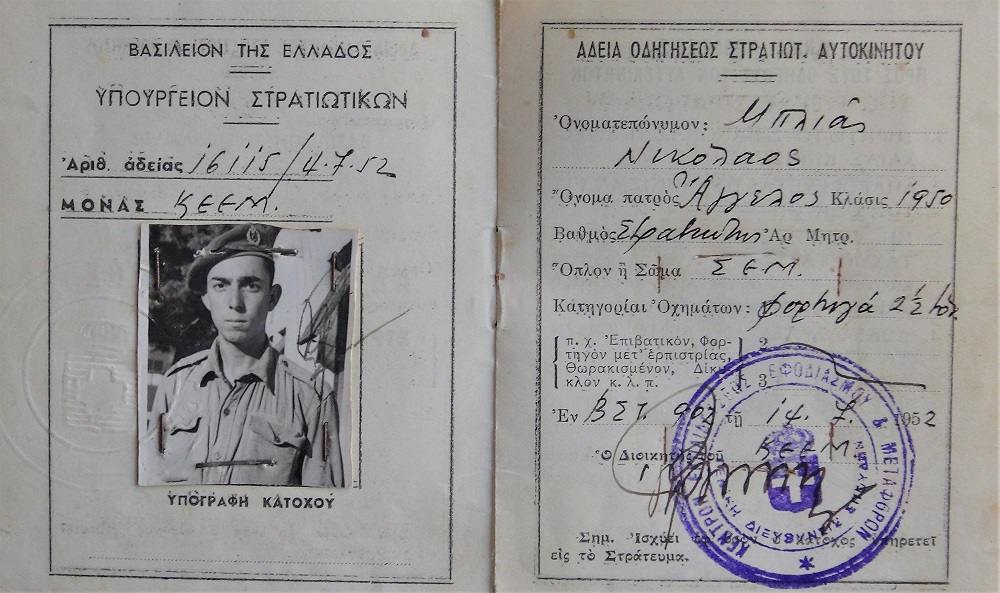 ΒΑΣΙΛΕΙΟΝ ΤΗΣ ΕΛΛΑΔΟΣ
ΥΠΟΥΡΓΕΙΟΝ ΣΤΡΑΤΙΩΤΙΚΩΝ
Ἀριθ. ἀδείας 16115/4.7.52
ΜΟΝΑΣ ΚΕΕΜ.
ΥΠΟΓΡΑΦΗ ΚΑΤΟΧΟΥ
ΑΔΕΙΑ ΟΔΗΓΗΣΕΩΣ ΣΤΡΑΤΙΩΤ. ΑΥΤΟΚΙΝΗΤΟΥ
Ὀνοματεπώνυμον: Μπλιάς
Νικόλαος
Ὄνομα πατρὸς Ἄγγελος Κλάσις 1950
Βαθμὸς Στρατιώτης Ἀρ Μητρ.
Ὅπλον ἢ Σῶμα ΣΕΜ.
Κατηγορίαι Ὀχημάτων: φορτηγά 2½ τον
π. χ. Ἐπιβατικόν, Φορ-
τηγὸν μετ' ἑρπιστρίας,
Θωρακισμένον, Δίκυ-
κλον κ. λ. π.
2
3
Ἐν ΒΣΤ 902 τῇ 14. 7. 1952
Ὁ Διοικητὴς τοῦ ΚΕΕΜ.
Σημ. Ἰσχύει ἐφ' ὅσον ὁ κάτοχος ὑπηρετεῖ
εἰς τὸ Στράτευμα.
ΚΕΝΤΡΟΝ ΕΚΠΑΙΔΕΥΣΕΩΣ ΕΦΟΔΙΑΣΜΟΥ & ΜΕΤΑΦΟΡΩΝ
ΔΙΕΥΘΥΝΣΙΣ ΣΠΟΥΔΩΝ